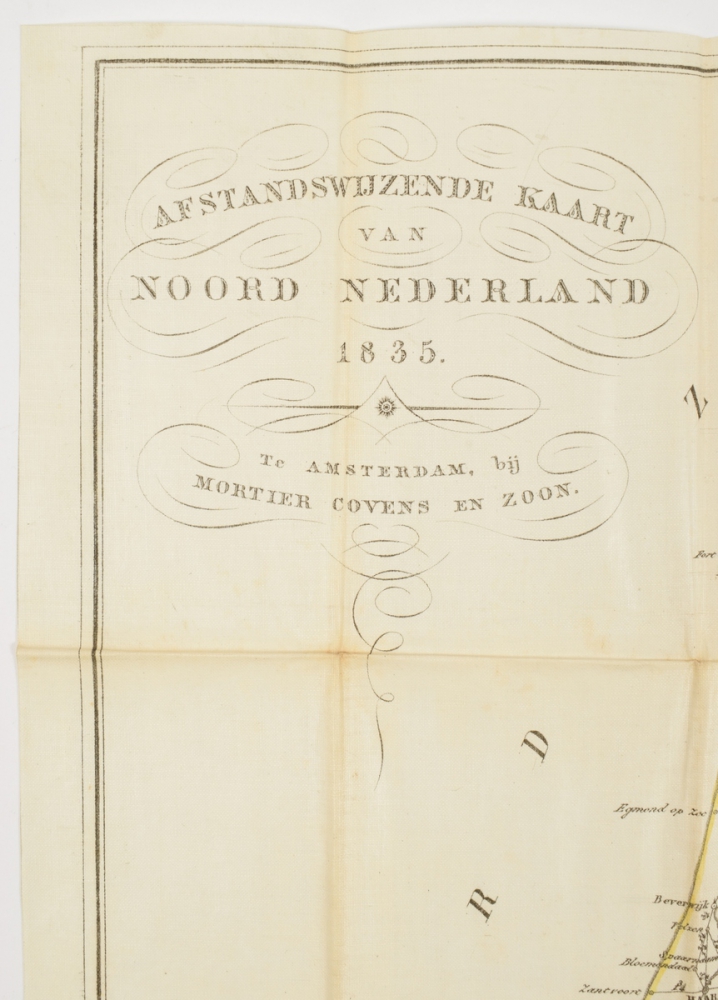 AFSTANDSWIJZENDE KAART
VAN
NOORD NEDERLAND
1835.
Te AMSTERDAM, bij
MORTIER COVENS EN ZOON.
Z
D
R
Egmond op Zee
Beverwijk
Velzen
Bloemendaal
Zantvoore